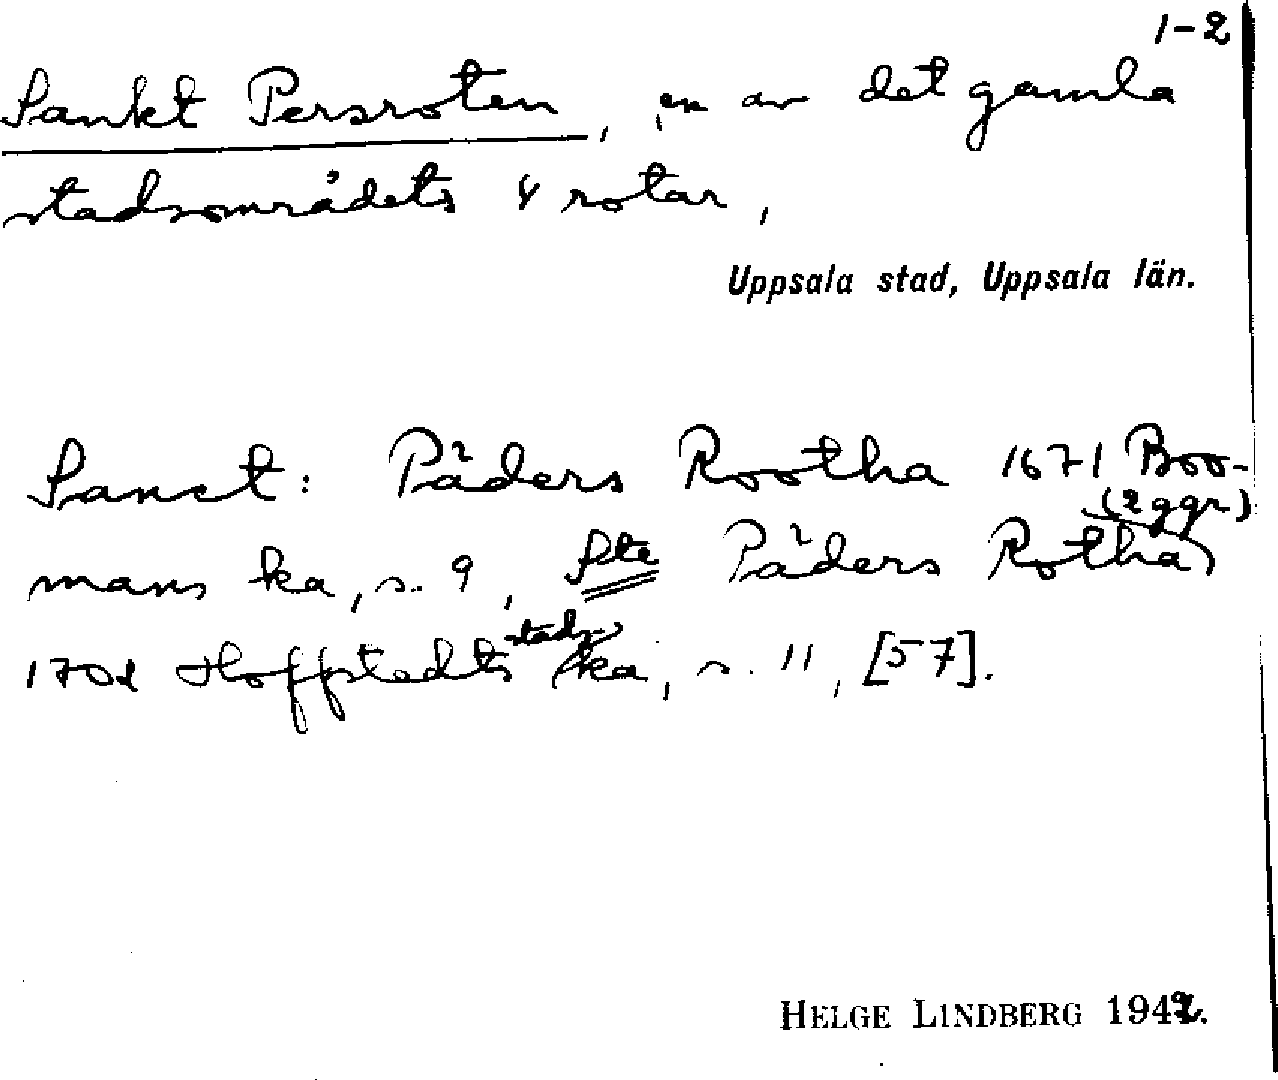 1-2
Sankt Persroten, en av det gamla
stadsområdets 4 rotar,
Uppsala stad, Uppsala län.
Sanct: Päders Rootha 1671 Boo-
(2 ggr)
mans ka, s. 9, Päders Rotha
stadz
1702 Hoffstedts ka, s. 11, [57].
HELGE LINDBERG 1942.